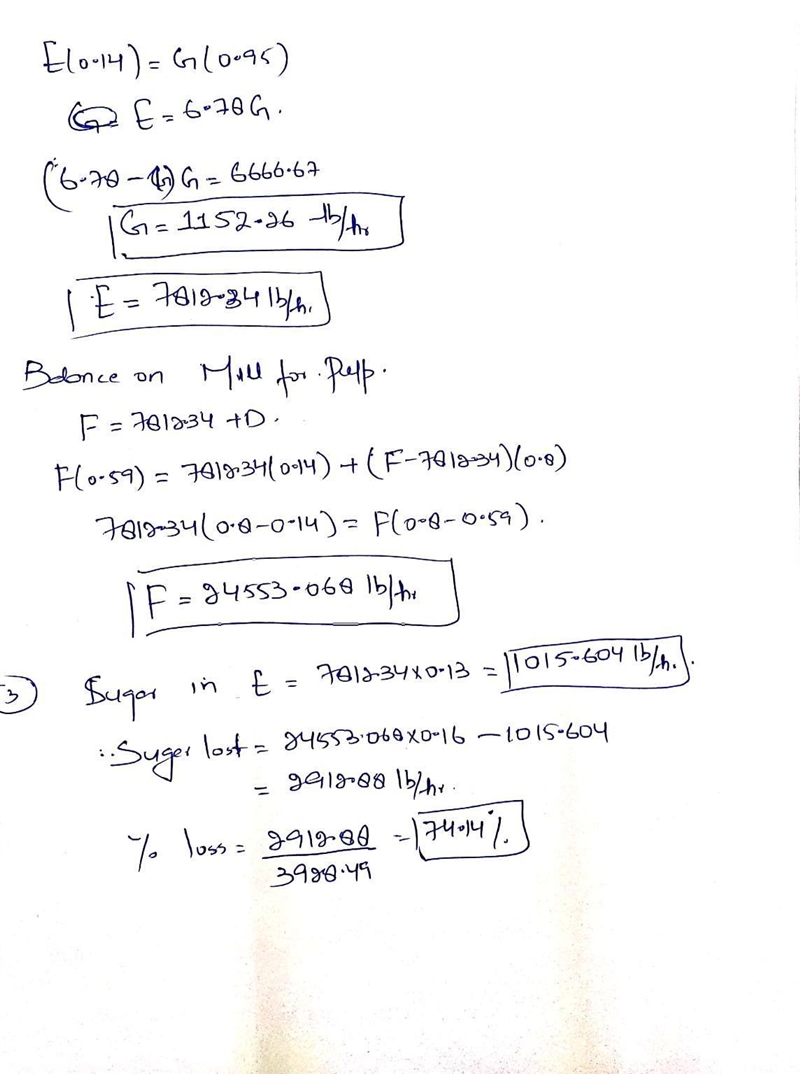 E(0.14) = G(0.95)
E = 6.78G.
(6.78 - 1)G = 6666.67
G = 1152.26 lb/hr
E = 7812.34 lb/h.
Balance on Mill for Pulp.
F = 7812.34 + D.
F(0.59) = 7812.34(0.14) + (F - 7812.34)(0.8)
7812.34(0.8 - 0.14) = F(0.8 - 0.59).
F = 24553.068 lb/hr
3 Sugar in E = 7812.34 x 0.13 = 1015.604 lb/h.
∴ Suger lost = 24553.068 x 0.16 - 1015.604
= 2912.88 lb/hr.
% loss = 2912.88 / 3928.49 = 74.14%.